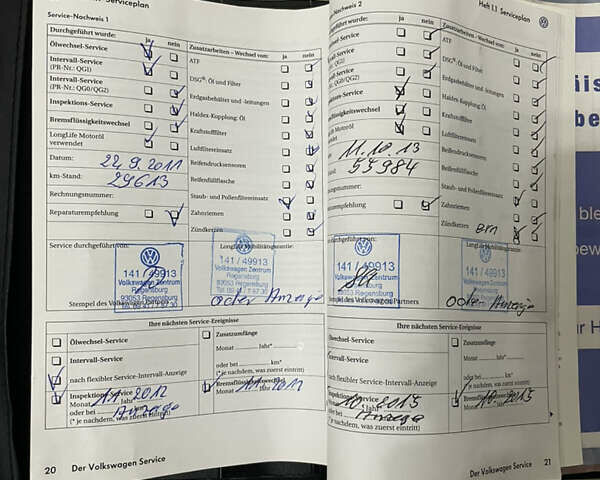 Serviceplan
Service-Nachweis 1
Durchgeführt wurde: ja nein
Zusatzarbeiten – Wechsel von: ja nein
Ölwechsel-Service
Intervall-Service
(PR-Nr.: QG1)
Intervall-Service
(PR-Nr.: QG0/QG2)
Inspektions-Service
Bremsflüssigkeitswechsel
LongLife Motoröl
verwendet
Datum: 22.9.2011
km-Stand: 29613
Rechnungsnummer:
Reparaturempfehlung
ATF
DSG®: Öl und Filter
Erdgasbehälter und -leitungen
Haldex-Kupplung: Öl
Kraftstofffilter
Luftfiltereinsatz
Reifendrucksensoren
Reifenfüllflasche
Staub- und Pollenfiltereinsatz
Zahnriemen
Zündkerzen
Service durchgeführt von:
LongLife Mobilitätsgarantie:
141 / 49913
Volkswagen Zentrum
Regensburg
93053 Regensburg
141 / 49913
Volkswagen Zentrum
Regensburg
93053 Regensburg
oder Anzeige
Stempel des Volkswagen Partners
Ihre nächsten Service-Ereignisse
Ölwechsel-Service
Intervall-Service
nach flexibler Service-Intervall-Anzeige
Inspektions-Service
Monat 11 Jahr 2012
oder bei Anzeige
(* je nachdem, was zuerst eintritt)
Zusatzumfänge
Monat Jahr*
oder bei km*
(* je nachdem, was zuerst eintritt)
Bremsflüssigkeitswechsel
Monat
20 Der Volkswagen Service
Service-Nachweis 2
Heft 1.1 Serviceplan
geführt wurde: ja nein
Zusatzarbeiten – Wechsel von: ja nein
11.10.13
55984
ATF
DSG®: Öl und Filter
Erdgasbehälter und -leitungen
Haldex-Kupplung: Öl
Kraftstofffilter
Luftfiltereinsatz
Reifendrucksensoren
Reifenfüllflasche
Staub- und Pollenfiltereinsatz
Zahnriemen
Zündkerzen
141 / 49913
Volkswagen Zentrum
Regensburg
93053 Regensburg
141 / 49913
Volkswagen Zentrum
Regensburg
oder Anzeige
Stempel des Volkswagen Partners
Ihre nächsten Service-Ereignisse
Ölwechsel-Service
nach flexibler Service-Intervall-Anzeige
Inspektions-Service
10. 2015
Anzeige
(* je nachdem, was zuerst eintritt)
Zusatzumfänge
Monat Jahr*
oder bei km*
(* je nachdem, was zuerst eintritt)
Bremsflüssigkeitswechsel
10. 2015
Der Volkswagen Service 21